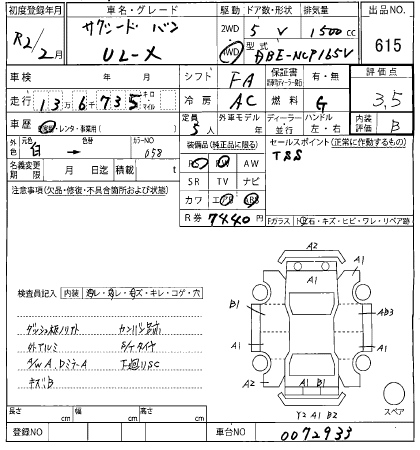 初度登録年月 車名・グレード 駆動 ドア数・形状 排気量 出品NO.
R2/2月 サクシード バン 2WD 5 V 1500cc 615
UL-X 4WD 型式 DBE-NCP165V
車検 年 月 シフト FA 保証書 有・無 評価点
走行 13万6千735 キロ マイル 冷房 AC 燃料 G 3.5
車歴 自家用・レンタ・事業用( ) 定員 5人 外車モデル 年 ディーラー 並行 ハンドル 左・右 内装評価 B
外色 元色 白 → 色替 カラーNO 058 装備品(純正品に限る) セールスポイント(正常に作動するもの)
名義変更期限 月 日迄 積載 t PS PW AW TSS
注意事項(欠品・修復・不具合箇所および状態) SR TV ナビ
カワ エアB ABS
R券 7440円 Fガラス ト
検査員記入 内装 汚レ・スレ・キズ・キレ・コゲ・穴
ダッシュ板ノリアト
外アルミ
A/W A、Dミラ-A 下廻りSC
キズB
A2
A1
A1
B1
A1
A1
AB3
A1
A2
A1
A1 B1
A2
Y2 A1 B2
スペア
長さ cm 幅 cm 高さ cm
登録NO 車台NO 0072933